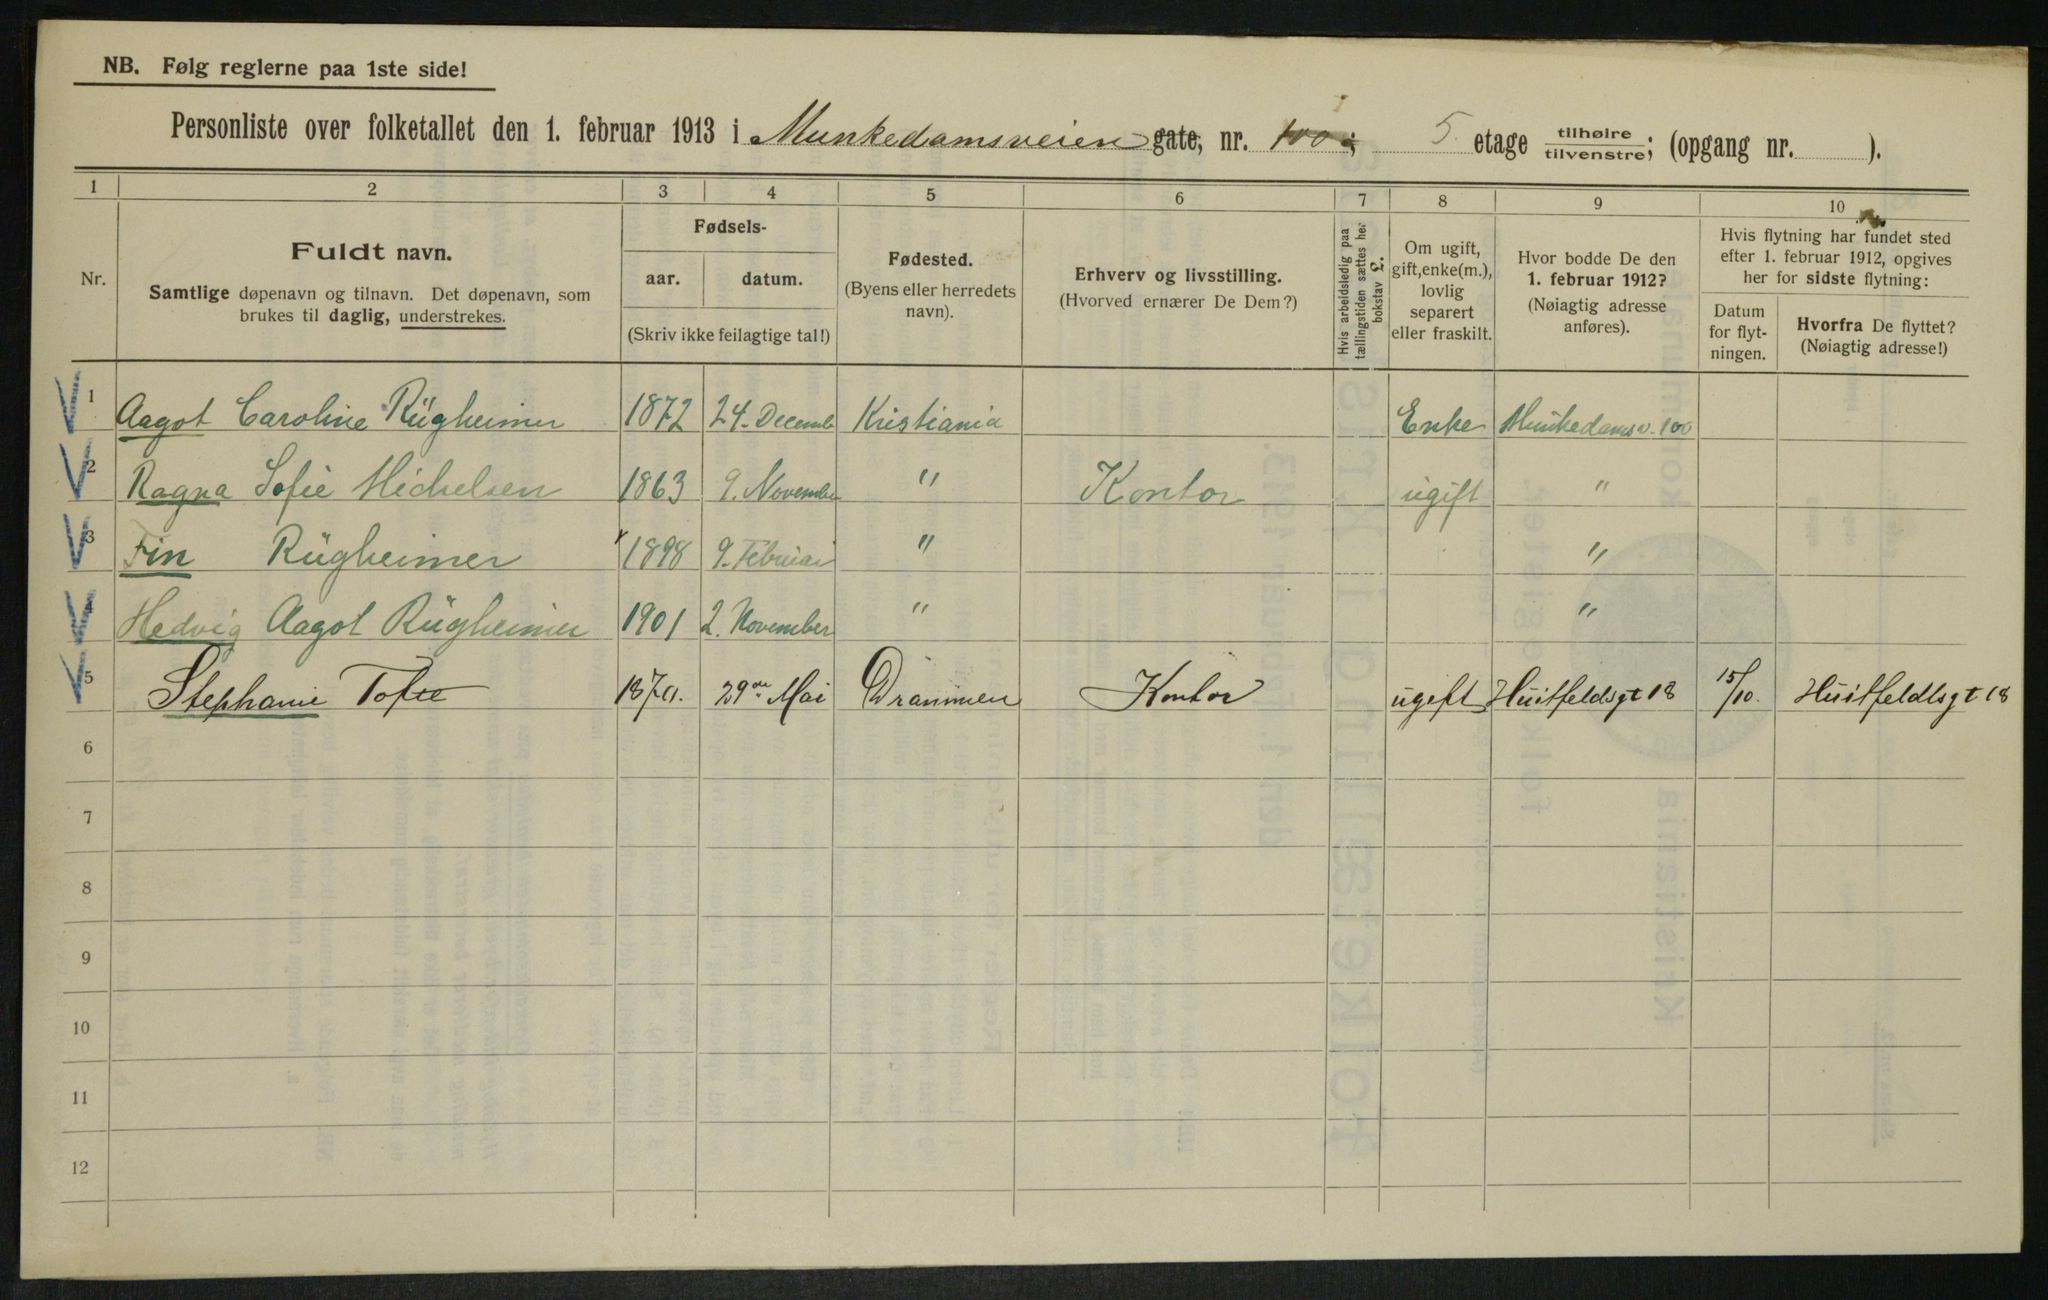 NB. Følg reglerne paa 1ste side!
Personliste over folketallet den 1. februar 1913 i Munkedamsveien gate, nr. 100; 5. etage tilhøire/tilvenstre; (opgang nr. ).
1 2 3 4 5 6 7 8 9 10
Nr.
Fuldt navn.
Samtlige døpenavn og tilnavn. Det døpenavn, som
brukes til daglig, understrekes.
Fødsels-
aar. datum.
(Skriv ikke feilagtige tal!)
Fødested.
(Byens eller herredets
navn).
Erhverv og livsstilling.
(Hvorved ernærer De Dem?)
Hvis arbeidsledig paa
tællingstiden sættes her
bokstav L.
Om ugift,
gift, enke(m.),
lovlig
separert
eller fraskilt.
Hvor bodde De den
1. februar 1912?
(Nøiagtig adresse
anføres).
Hvis flytning har fundet sted
efter 1. februar 1912, opgives
her for sidste flytning:
Datum
for flyt-
ningen.
Hvorfra De flyttet?
(Nøiagtig adresse!)
1 Aagot Caroline Rügheimer 1872 24. Decemb Kristiania Enke Munkedamsv. 100
2 Ragna Sofie Michelsen 1863 9. November " Kontor ugift "
3 Fin Rügheimer 1898 9. Februar " "
4 Hedvig Aagot Rügheimer 1901 2. November " "
5 Stephanie Tofte 1870. 29de Mai Drammen Kontor ugift Huitfeldsgt 18 15/10. Huitfeldtsgt 18
6
7
8
9
10
11
12